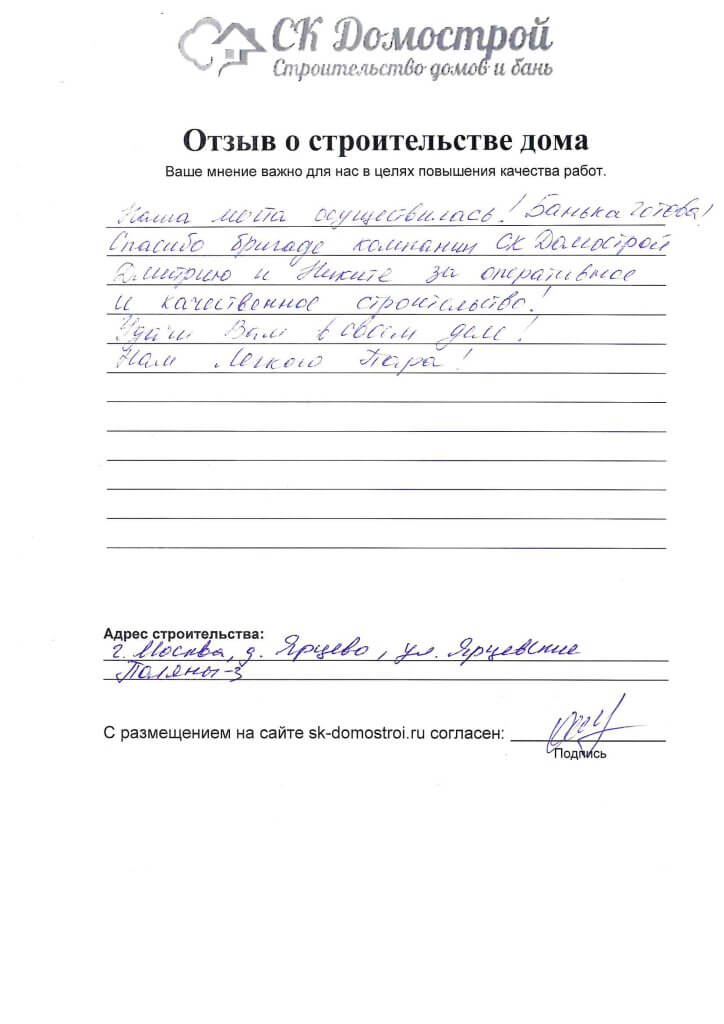 СК Домострой
Строительство домов и бань
Отзыв о строительстве дома
Ваше мнение важно для нас в целях повышения качества работ.
Наша мечта осуществилась! Банька готова!
Спасибо бригаде компании СК Домострой
Дмитрию и Никите за оперативное
и качественное строительство!
Удачи Вам в своем деле!
Нам Легкого Пара!
Адрес строительства:
г. Москва, д. Ярцево, ул. Ярцевские
Поляны-3
С размещением на сайте sk-domostroi.ru согласен:
Подпись